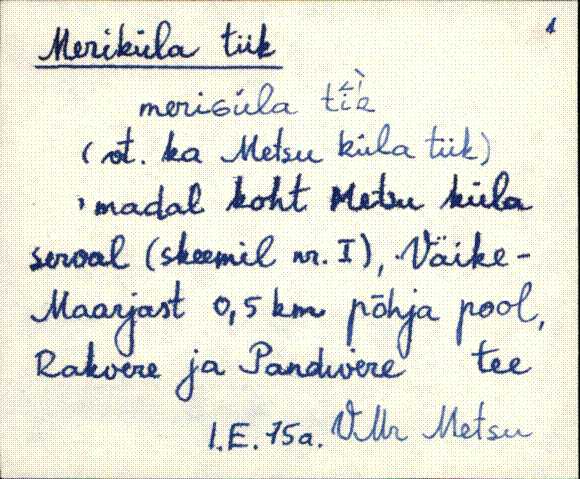 1
Meriküla tiik
meriGüla
(vt. ka Metsu küla tiik)
madal koht Metsu küla
serval (skeemil nr. I), Väike-
Maarjast 0,5 km põhja pool,
Rakvere ja Pandivere tee
I.E. 75a. VMr Metsu